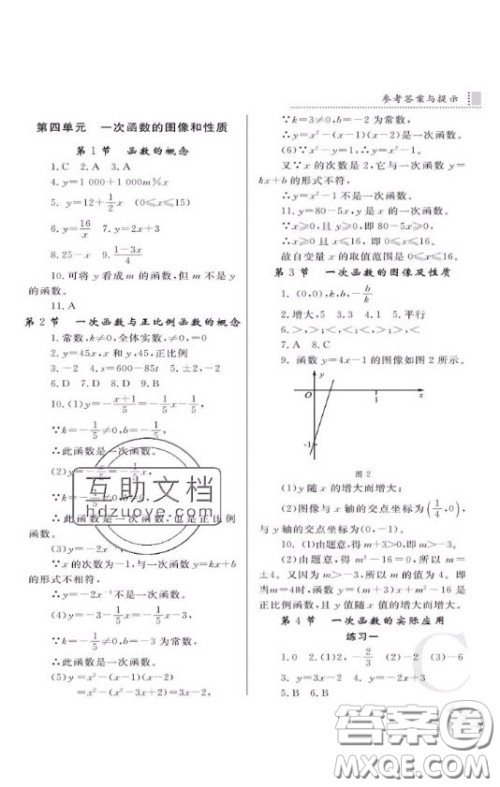 参考答案与提示
第四单元 一次函数的图像和性质
第1节 函数的概念
1.C 2.A 3.A
4.y=1 000+1 000m%x
5.y=12+1/2x (0≤x≤15)
6.y=16/x 7.y=2x+3
8.25-x 9.(1-3x)/4
10.可将 y 看成 m 的函数,但 m 不是 y
的函数。
11.A
第2节 一次函数与正比例函数的概念
1.常数,k≠0,全体实数,≠0,=0
2.y=45x,x 和 y,正比例
3.-2 4.s=600-85t 5.±2,-2
6.D 7.D 8.D 9.B
10.(1)y=-(x+1)/5=-1/5x-1/5,
∵k=-1/5≠0,b=-1/5≠0,
∴此函数是一次函数。
∴此函数是一次函数,也是正比例
函数。
∵x 的次数为-1,与一次函数 y=kx+b
的形式不相符,
不是一次函数。
∵k=-1/5≠0,b=-3 为常数,
∴此函数是一次函数。
(5)y=x²-(x-1)(x-2)
=x²-(x²-3x+2)=3x-2,
∵k=3≠0,b=-2 为常数,
∴y=x²-(x-1)(x-2)是一次函数。
(6)∵y=x²-1,
又∵x 的次数是 2,它与一次函数 y=
kx+b 的形式不符,
∴y=x²-1 不是一次函数。
11.y=80-5x,y 是 x 的一次函数。
∵x≥0,且 y≥0,即 80-5x≥0,
∴x≥0 且 x≤16,即 0≤x≤16。
故自变量 x 的取值范围是 0≤x≤16。
第3节 一次函数的图像及性质
1.(0,0),k,b,-b/k
2.增大,5 3.3 4.1 5.平行
6.>,>;<,>;>,<;<,<
7.A 8.C
9.函数 y=4x-1 的图像如图 2 所示。
y
O
1
x
-1
图 2
(1)y 随 x 的增大而增大;
(2)图像与 x 轴的交点坐标为(1/4,0),
与 y 轴的交点坐标为(0,-1)。
10.(1)由题意,得 m+3>0,即 m>-3。
(2)由题意,得 m²-16=0,所以 m=
±4。又因为 m>-3,所以 m=4。即当
m=4时,函数 y=(m+3)x+m²-16 是
正比例函数,且 y值随 x 值的增大而增大。
第4节 一次函数的实际应用
练习一
1.0 2.(1)2,-2/3 (2)-2 (3)-6
3.y=3x-2 4.y=-2x
5.B 6.B
互助文档
hdzuoye.com
C
答案圈
MXQE.COM